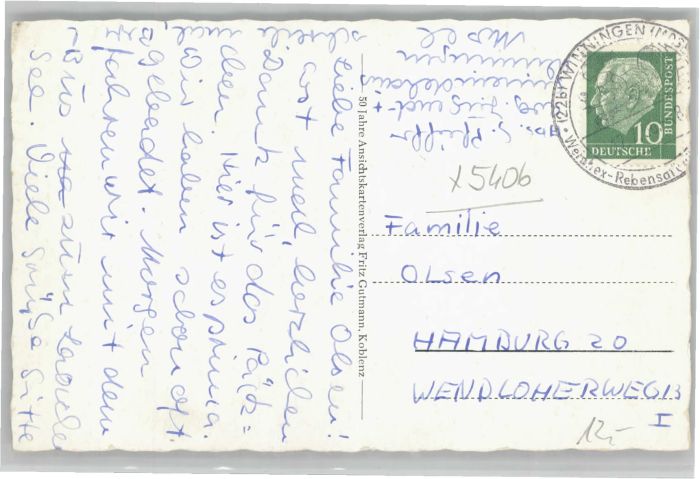 Liebe Familie Olsen!
erst mal herzlichen
Dank für das Päck=
chen. Hier ist es prima.
Wir haben schon oft
gebadet. Morgen
fahren wir mit dem
Bus zum Laacher
See. Viele Grüße Gitte
50 Jahre Ansichtskartenverlag Fritz Gutmann, Koblenz
Winningen
Mosel
(22b) WINNINGEN (MOSEL)
Weinhex-Rebensaft
10
DEUTSCHE
BUNDESPOST
x5406
Familie
OLSEN
HAMBURG 20
WENDLOHERWEG 13
I
12,-